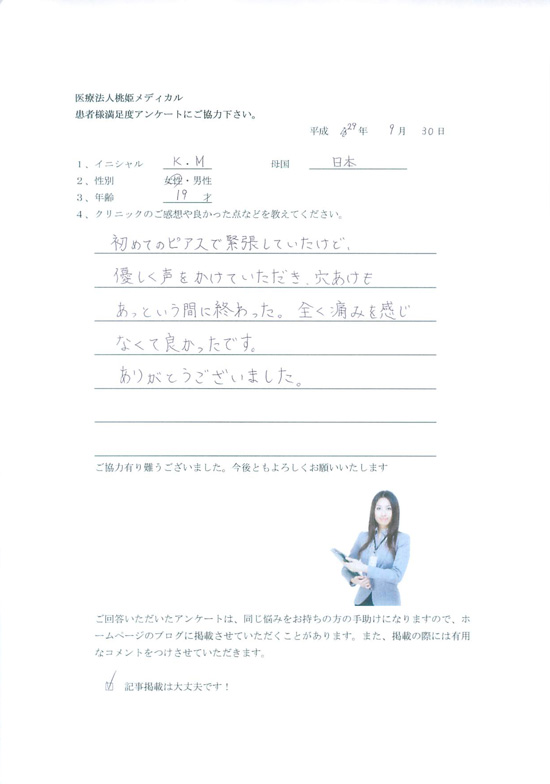 医療法人桃姫メディカル
患者様満足度アンケートにご協力下さい。
平成 29年 9月 30日
1、イニシャル K.M 母国 日本
2、性別 女性・男性
3、年齢 19 才
4、クリニックのご感想や良かった点などを教えてください。
初めてのピアスで緊張していたけど、
優しく声をかけていただき、穴あけも
あっという間に終わった。全く痛みを感じ
なくて良かったです。
ありがとうございました。
ご協力有り難うございました。今後ともよろしくお願いいたします
ご回答いただいたアンケートは、同じ悩みをお持ちの方の手助けになりますので、ホ
ームページのブログに掲載させていただくことがあります。また、掲載の際には有用
なコメントをつけさせていただきます。
☑ 記事掲載は大丈夫です!